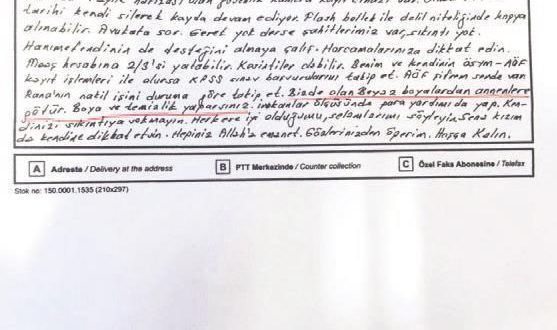 tarihi kendi silerek kayda devam ediyor. Flash bellek ile delil niteliğinde kopya
alınabilir. Avukata sor. Gerek yok derse şahitlerimiz var, sıkıntı yok.
Hanımefendinin de desteğini almaya çalış. Harcamalarınıza dikkat edin.
Maaş hesabına 2/3'si yatabilir. Kesintiler olabilir. Benim ve kendinin ösym - AÖF
kayıt işlemleri ile olursa KPSS sınav başvurularını takip et. AÖF şifren sende var
Rana'nın nakil işini duruma göre takip et. Bizde olan Beyaz boyalardan annenlere
götür. Boya ve temizlik yaparsınız. imkanlar ölçüsünde para yardımı da yap. Ken-
dinizi sıkıntıya sokmayın. Herkese iyi olduğumu, selamlarımı söyleyin. Sena kızım
da kendine dikkat etsin. Hepiniz Allah'a emanet. Gözlerinizden öperim. Hoşça Kalın.
A Adreste / Delivery at the address B PTT Merkezinde / Counter collection C Özel Faks Abonesine / Telefax
Stok no: 150.0001.1535 (210x297)